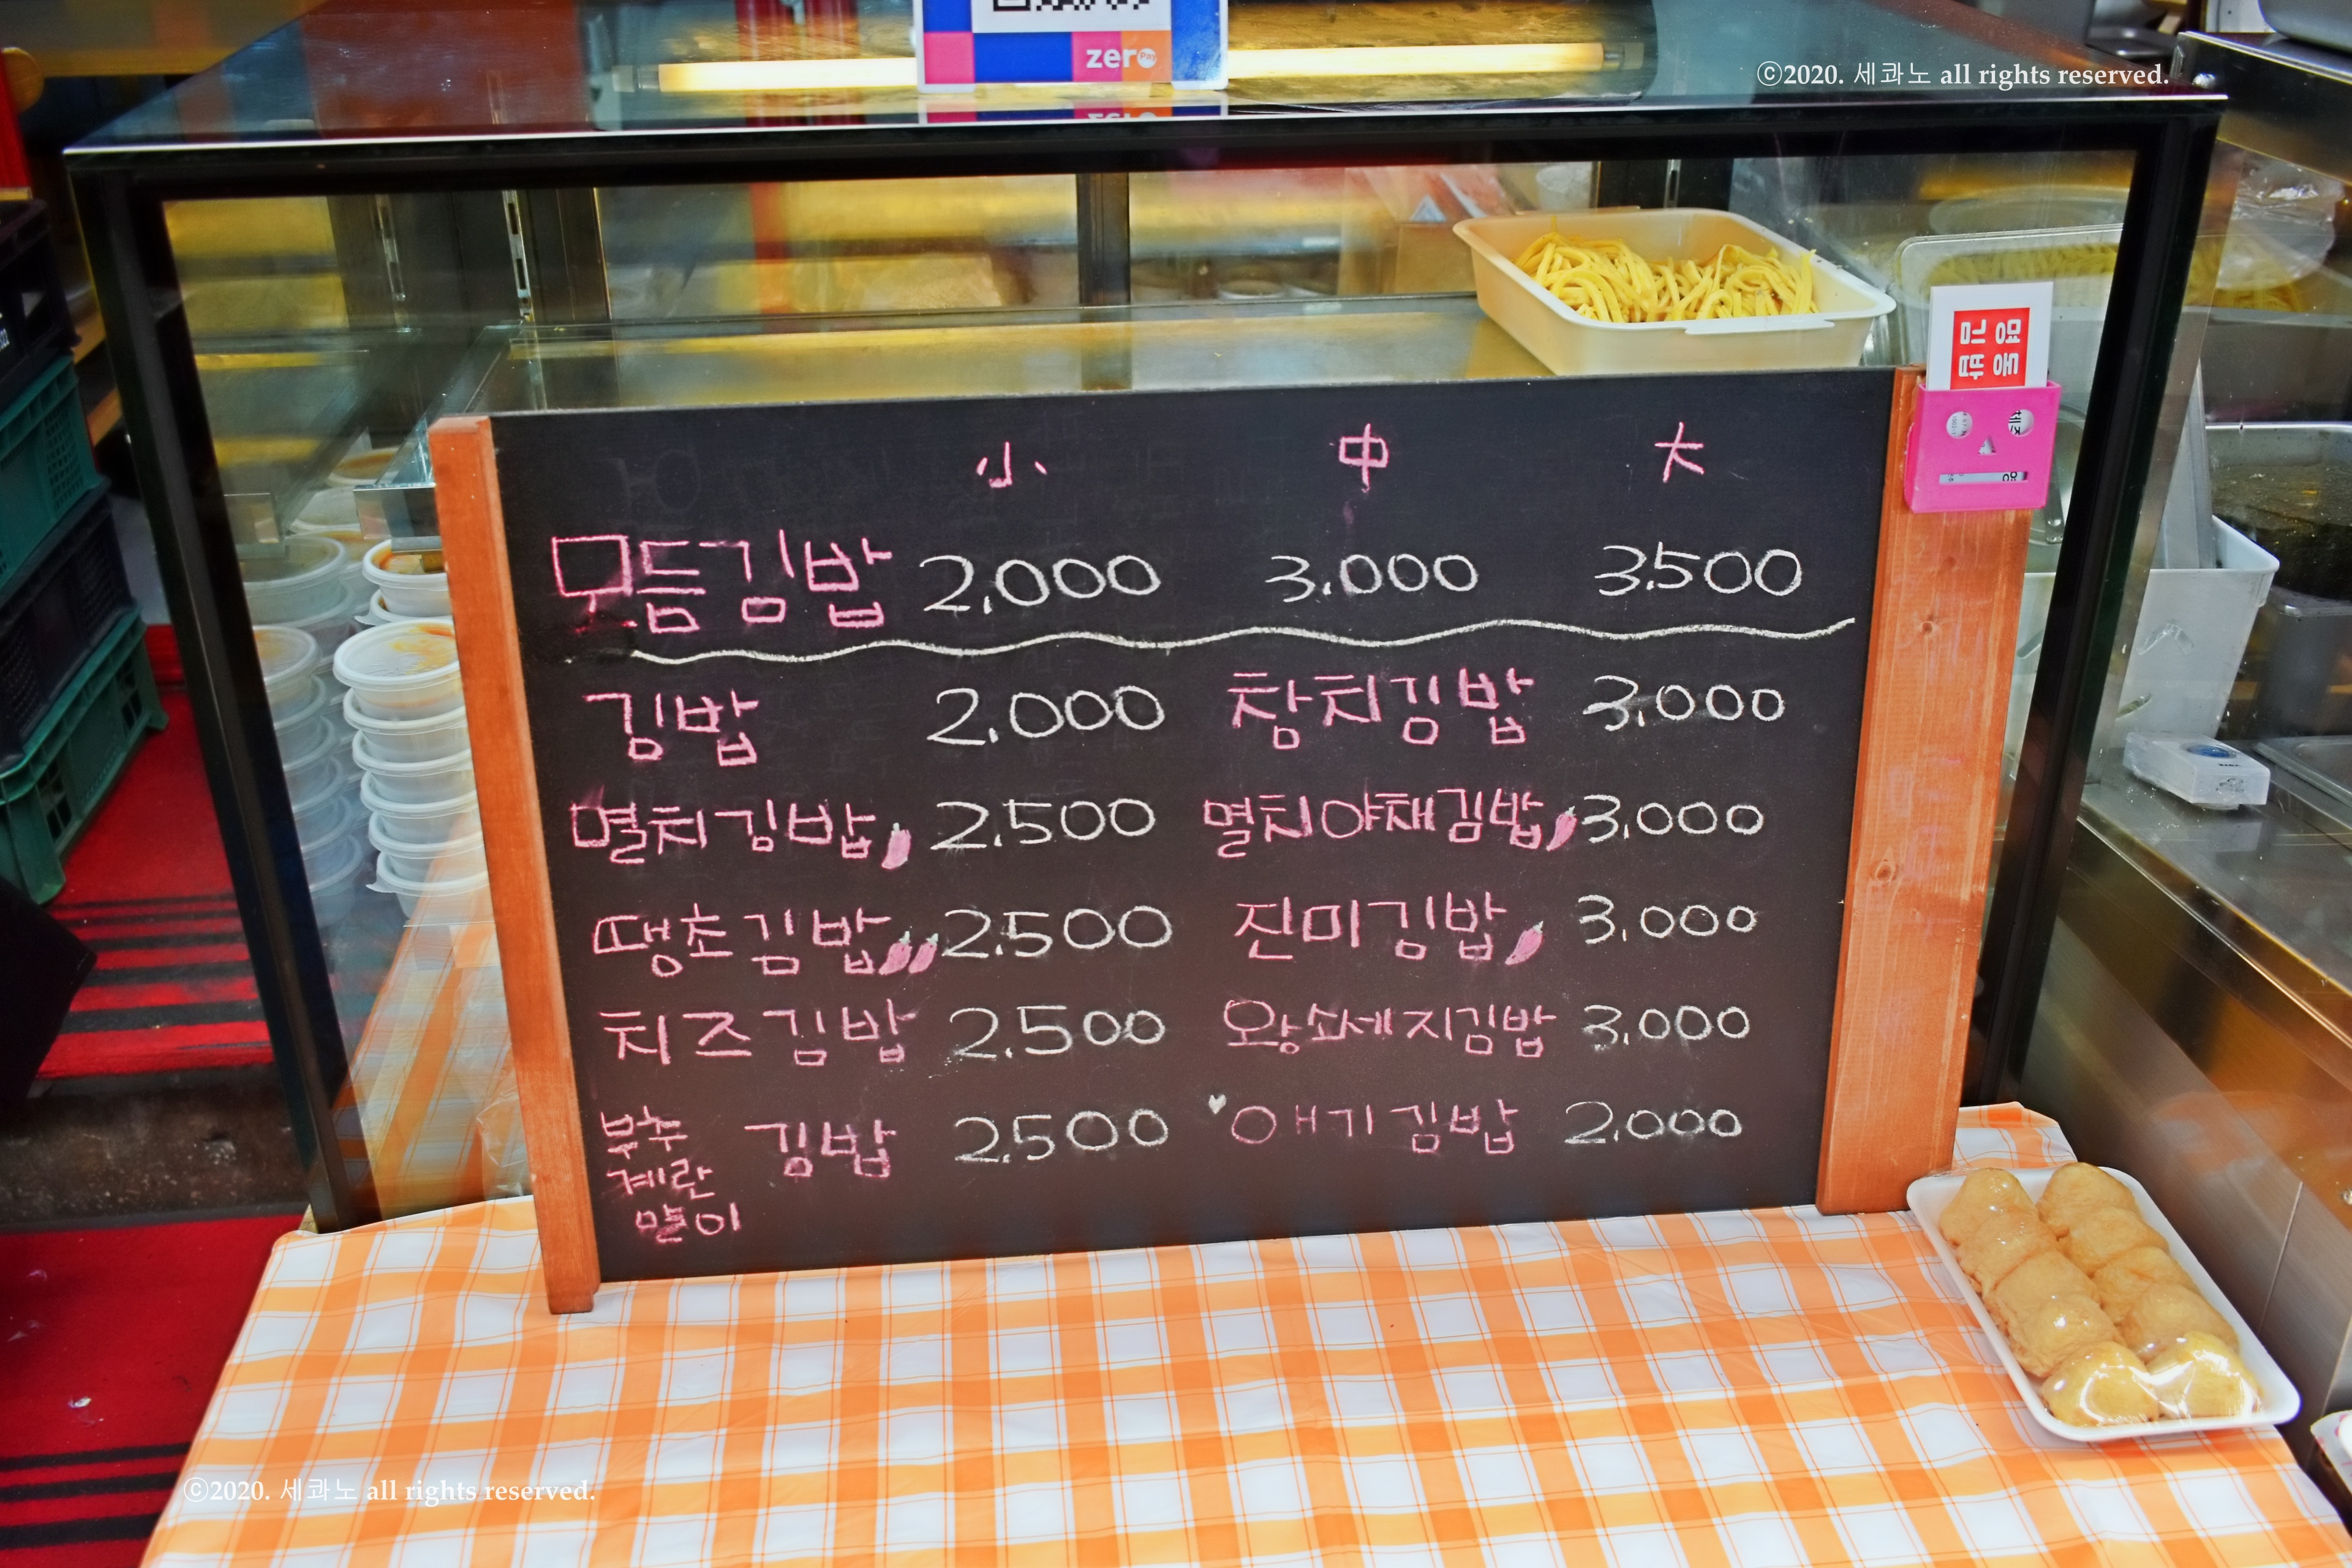 zero Pay
©2020. 세콰노 all rights reserved.
명동
小 中 大
모듬김밥 2,000 3,000 3,500
김밥 2,000 참치김밥 3,000
멸치김밥 2,500 멸치야채김밥 3,000
땡초김밥 2,500 진미김밥 3,000
치즈김밥 2,500 왕소세지김밥 3,000
부추계란말이 김밥 2,500 애기김밥 2,000
©2020. 세콰노 all rights reserved.